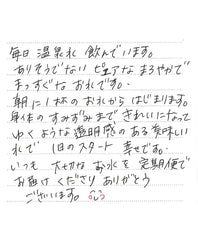 毎日 温泉水 飲んでいます。
ありそうでない ピュアな まろやかで
まっすぐな お水です。
朝に1杯のお水から はじまります。
身体のすみずみまで きれいになって
ゆくような透明感のある美味しい
水で 1日のスタート 幸せです。
いつも 大切な お水を 定期便で
お届けくださり ありがとう
ございます。